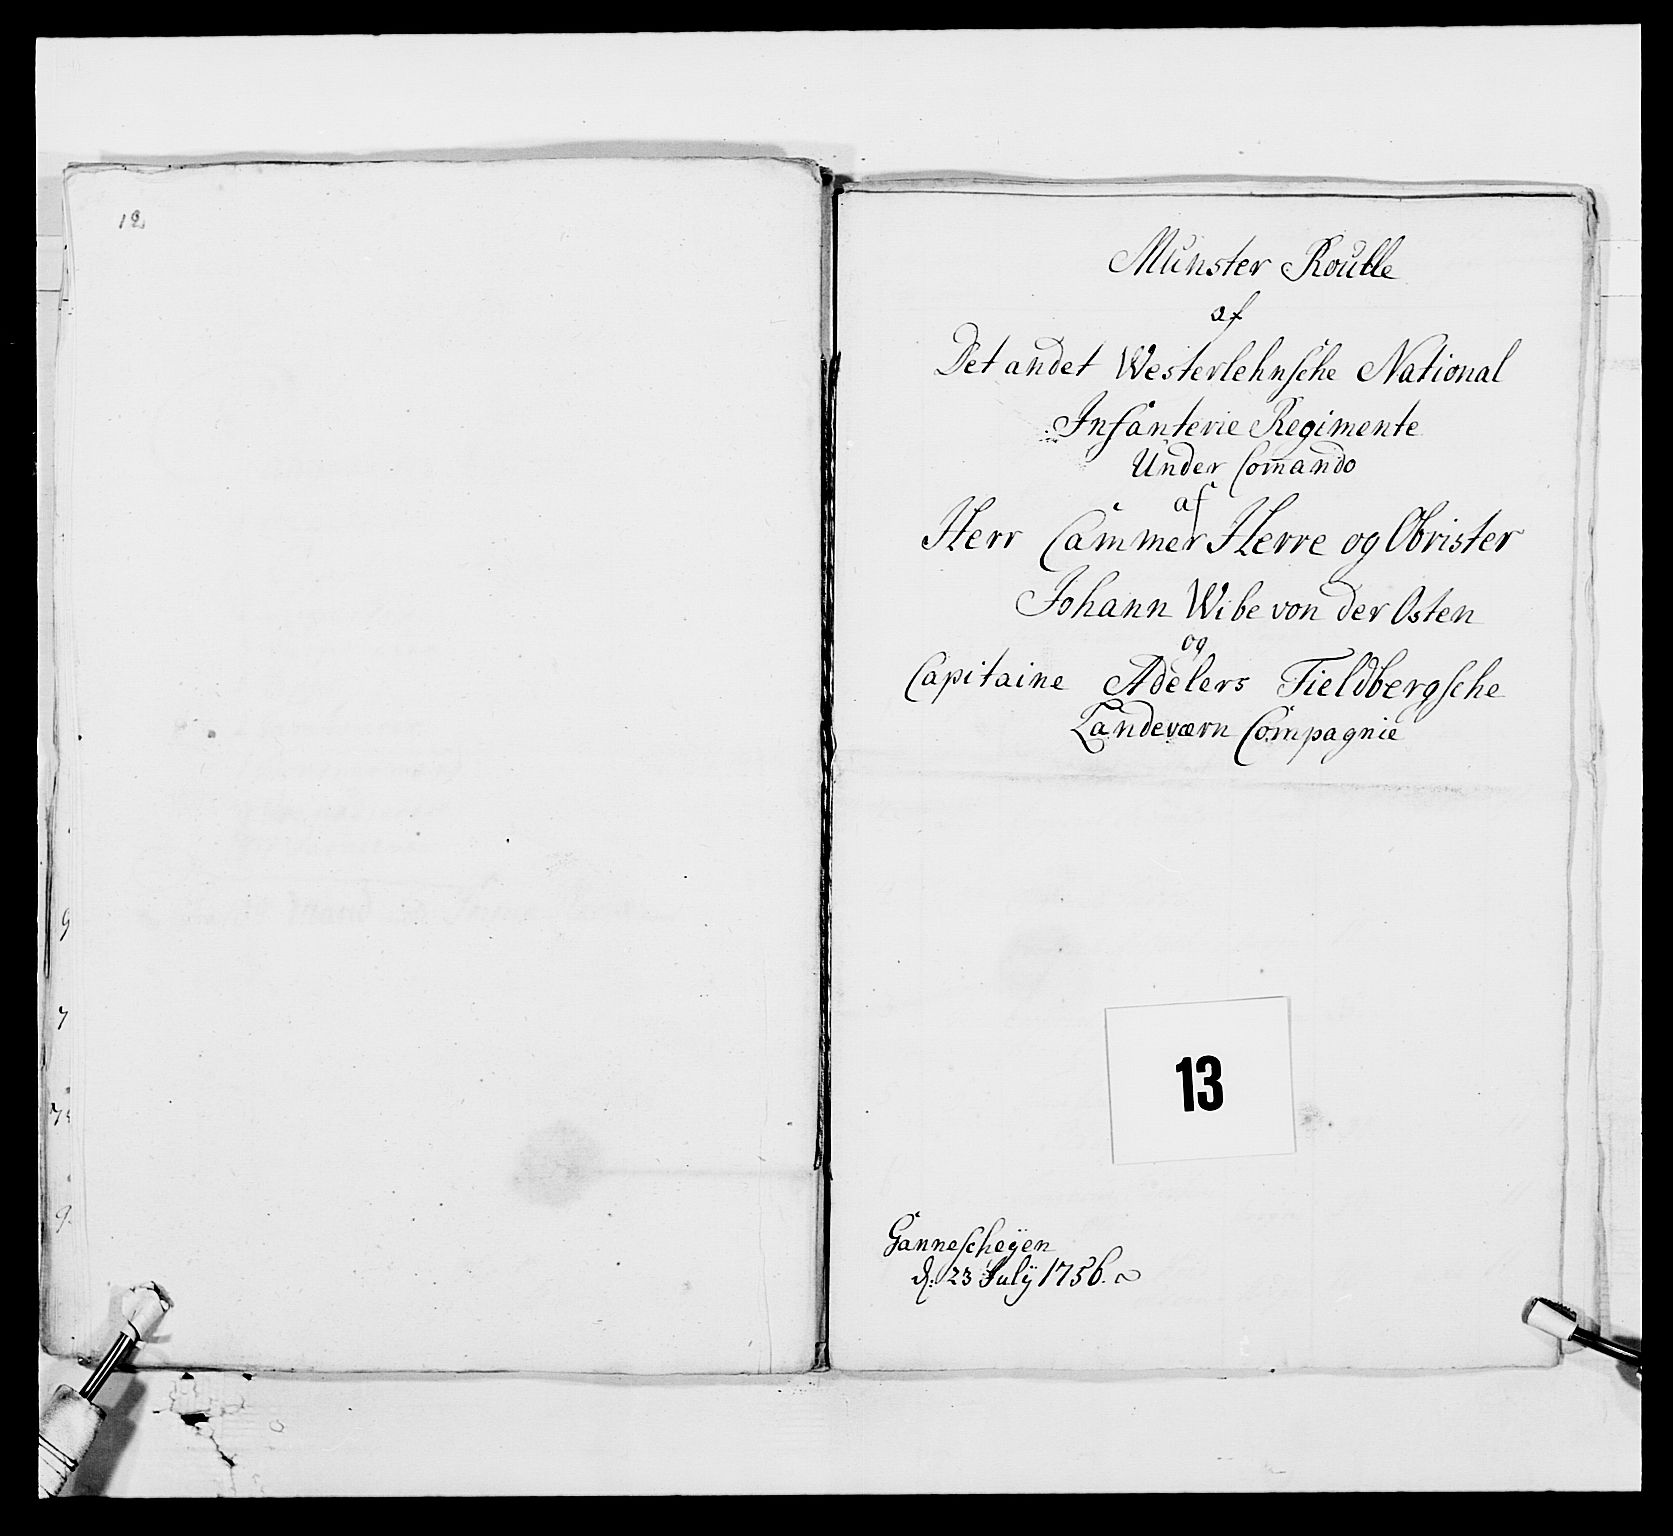 12.
9
7
7
9.
Münster Roulle
af
Det andet Westerlehnsche National
Infanterie Regimente
Under Com̄ando
af
Herr Cammer Herre og Obrister
Johann Wibe von der Osten
og
Capitaine Adelers Fieldbergsche
Landeværn Compagnie
13
Gannescheÿen
d: 23 Julÿ 1756.